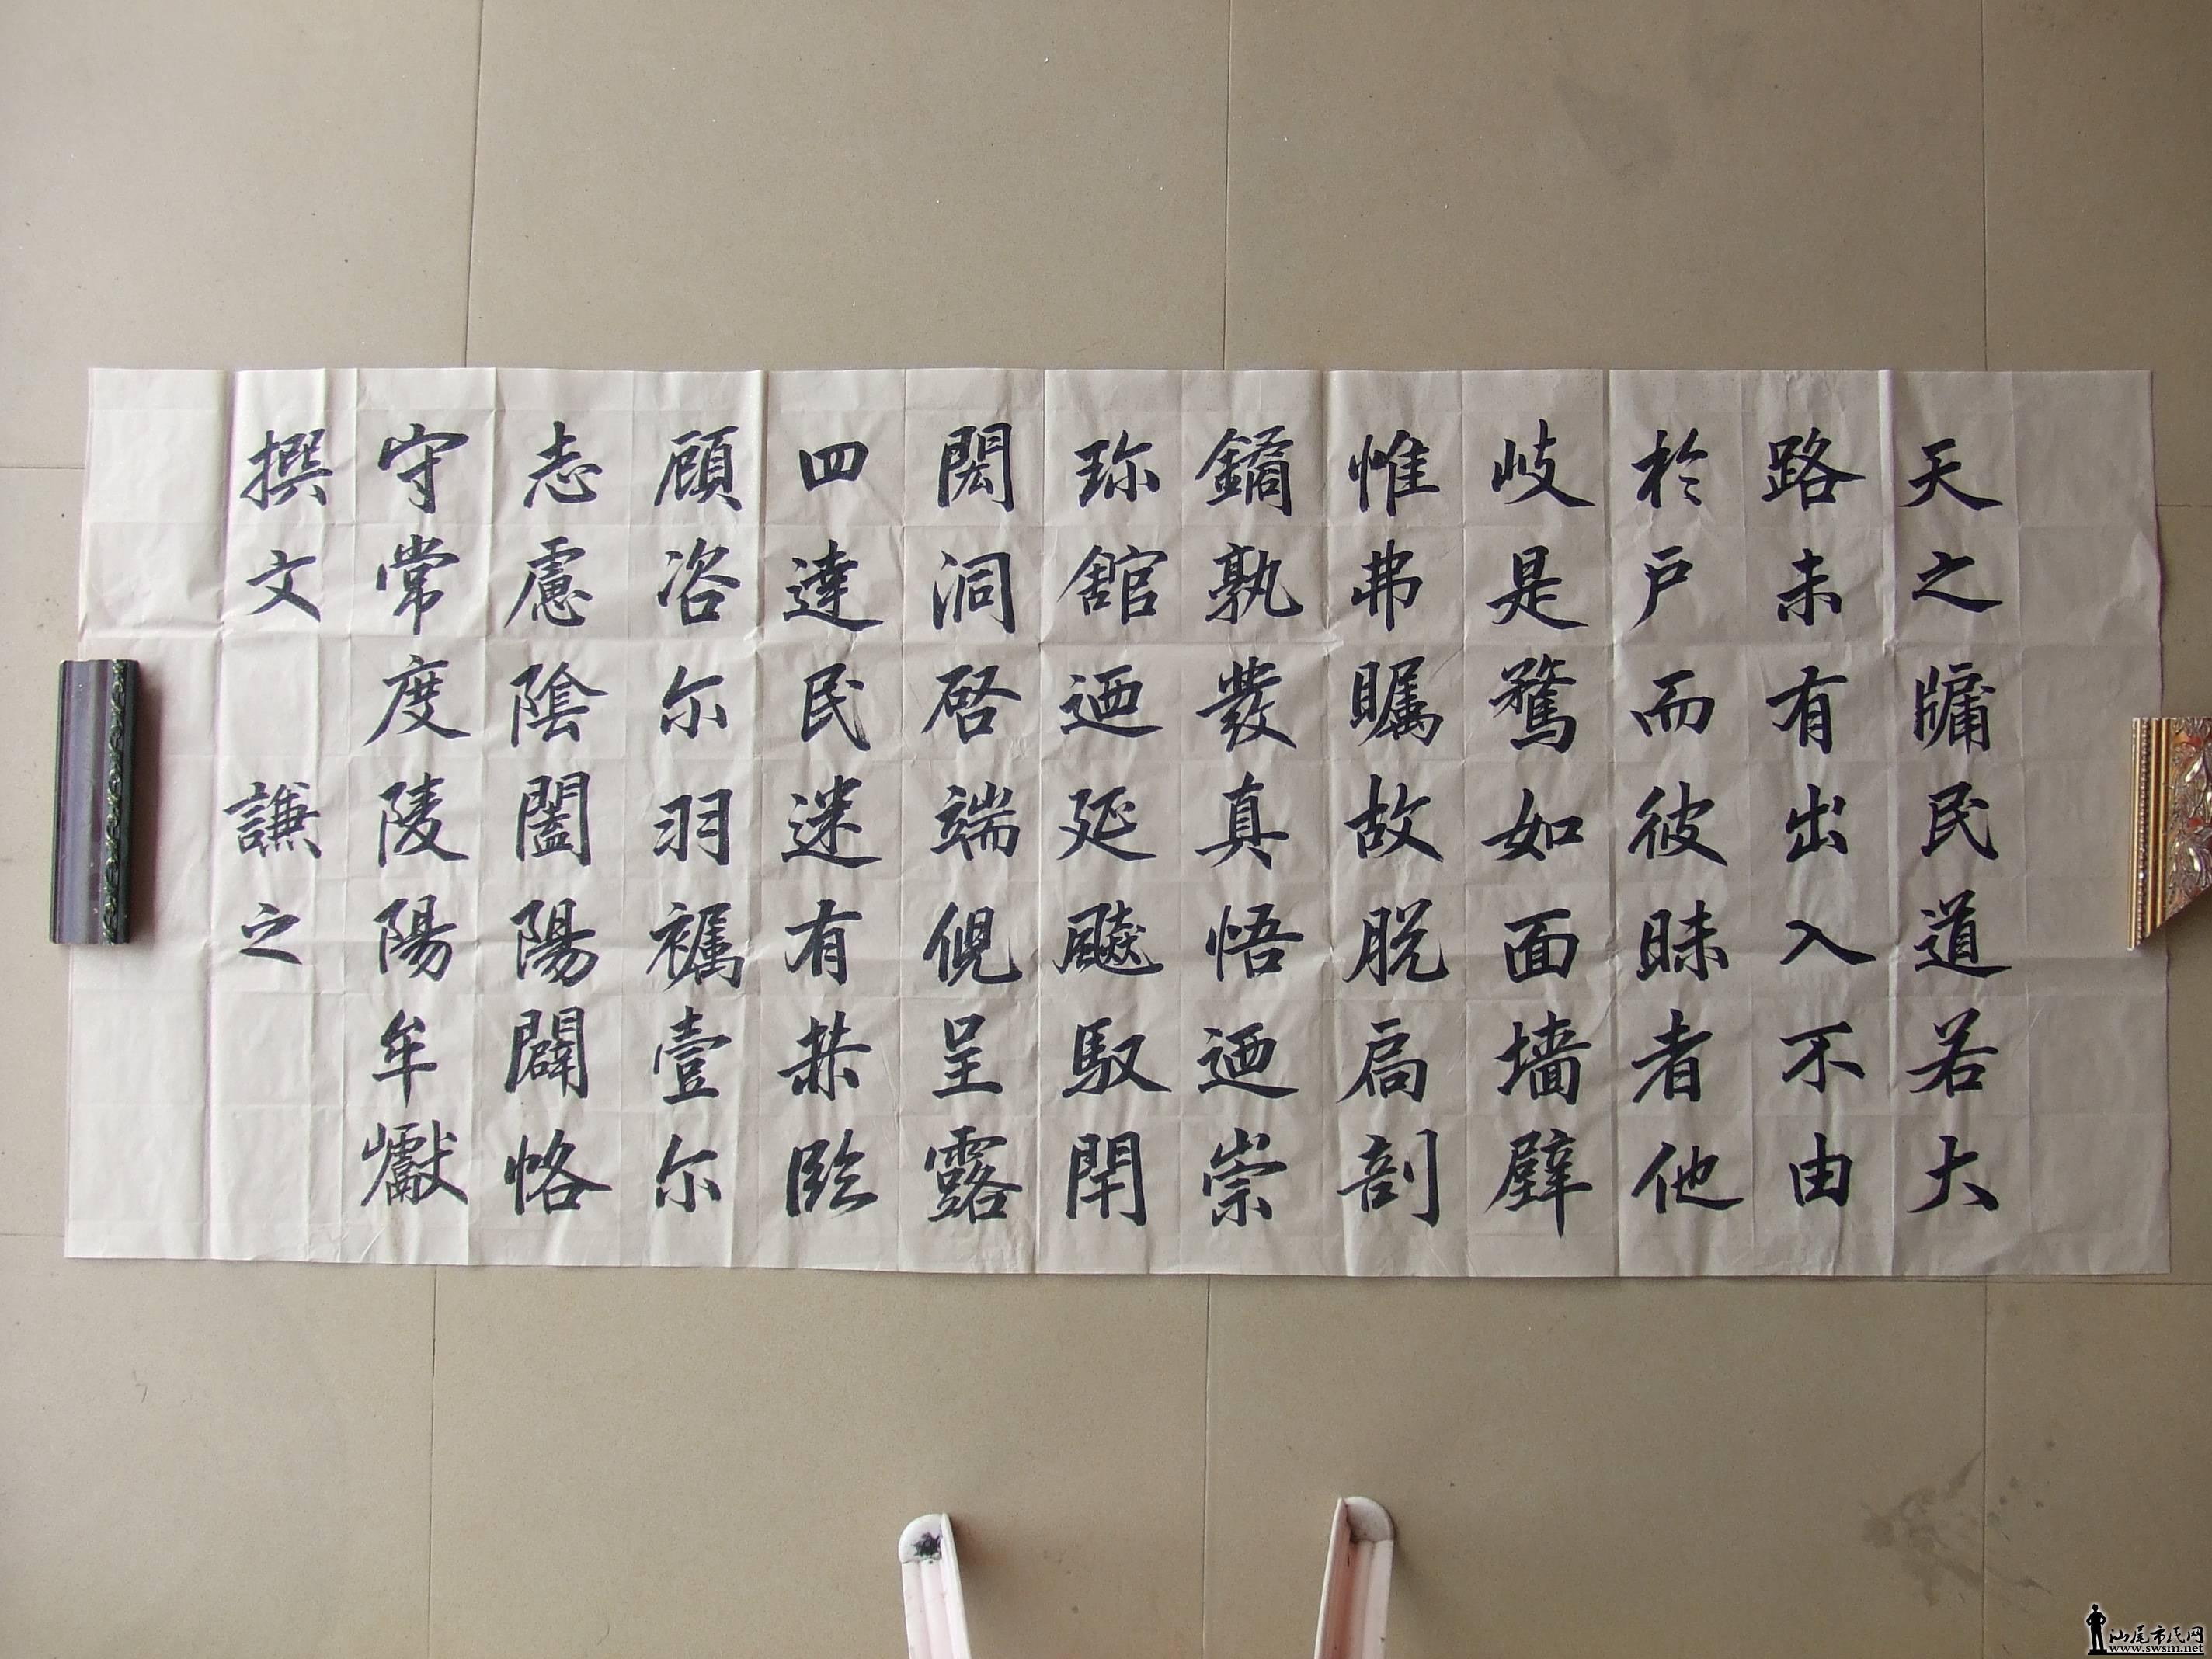 天之牖民道若大
路未有出入不由
於戶而彼昧者他
岐是騖如面墙壁
惟弗矚故脱扃剖
鐍孰發真悟迺崇
珎舘迺延飈馭閈
閎洞啓端倪呈露
四達民迷有赫臨
顧咨尔羽襦壹尔
志慮陰闔陽闢恪
守常度陵陽牟巘
撰文 謙之
汕尾市民网
www.swsm.net